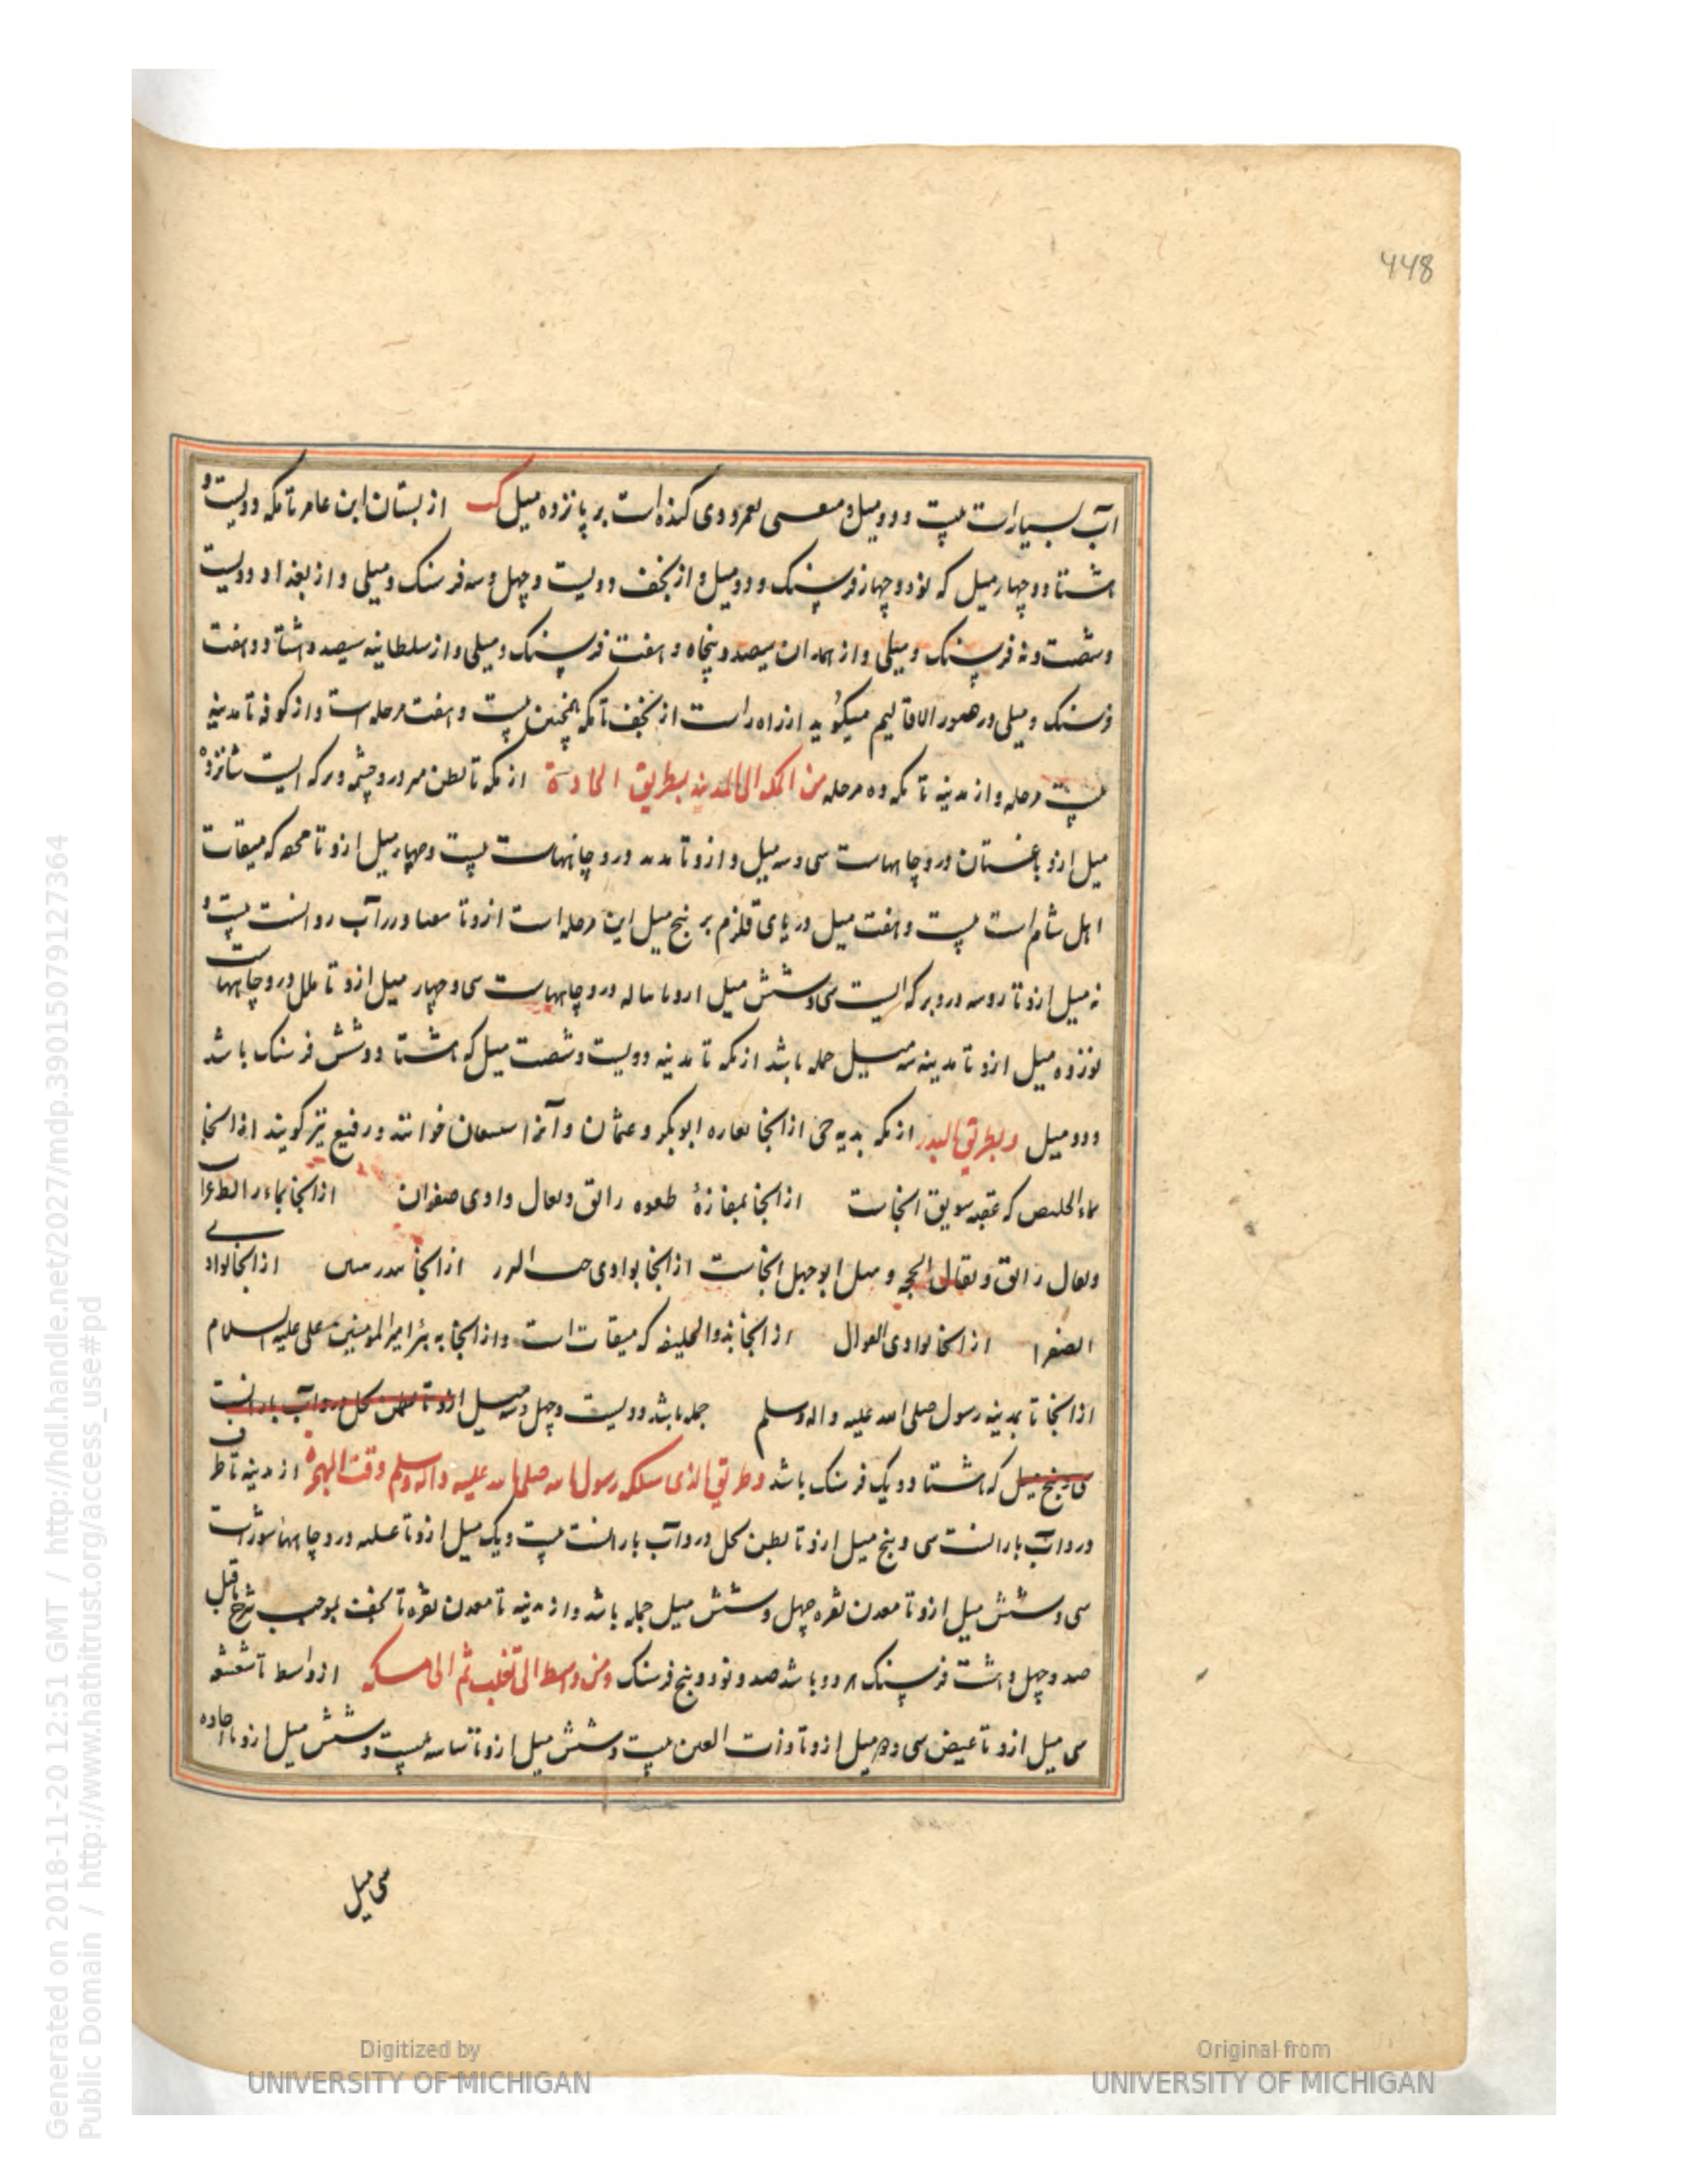 448
آب بسیارست بیست و دو میل و معسی نمرودی کنده است بر پانزده میل از بستان ابن عامر تا مکه دویست و
هشتاد و چهار میل که نود و چهار فرسنک و دو میل و از نجف دویست و چهل و سه فرسنک و میلی و از بغداد دویست
و شصت و نه فرسنک و میلی و از همدان سیصد و پنجاه و هفت فرسنک و میلی و از سلطانیه سیصد و هشتاد و هفت
فرسنک و میلی در صور الاقالیم میکوید از راه راست از نجف تا مکه همچنین بیست و هفت مرحله است و از کوفه تا مدینه
بیست مرحله و از مدینه تا مکه ده مرحله من المکه الی المدینه بطریق الجادة از مکه تا بطن مر درو چشمه و برکه ایست شانزده
میل ازو با غستان درو چاههاست سی و سه میل و ازو تا درو چاههاست بیست و چهار میل ازو تا که میقات
اهل شام است بیست و هفت میل دریای قلزم بر پنج میل این مرحله است ازو تا درر آب روانست بیست و
نه میل ازو تا درو برکه ایست سی و شش میل ازو تا درو چاههاست سی و چهار میل ازو تا ملل درو چاههاست
نوزده میل ازو تا مدینه سه میل جمله باشد از مکه تا مدینه دویست و شصت میل که هشتاد و شش فرسنک باشد
و دو میل و بطریق البدر از مکه بدیه از انجا ابوبکر و عثمان و آنرا عسفان خوانند و رفیع نیز کویند از انجا
بماء که عقبه سویق انجاست از انجا بمفازهٔ رالق و لعال وادی صفران از انجا بماء
و لعال رالق و لقال الحجر و میل ابوجهل انجاست از انجا بوادی از انجا از انجا بوادی
الصفرا از انجا بوادی از انجا بذوالحلیفه که میقات است و از انجا به بئر امیر المومنین علی علیه السلام
از انجا تا بمدینه رسول صلی الله علیه و اله وسلم جمله باشد دویست و چهل و سه میل ازو تا بطن نخل درو آب بارانست
سی و پنج میل که هشتاد و یک فرسنک باشد و طریق الذی سلکه رسول الله صلی الله علیه واله وسلم وقت الهجرة از مدینه تا طرف
درو آب بارانست سی و پنج میل ازو تا بطن نخل درو آب بارانست بیست و یک میل ازو تا درو چاههاء شورست
سی و شش میل ازو تا معدن نقره چهل و شش میل جمله باشد و از مدینه تا معدن نقره تا نجف بموجب شرح ماقبل
صد و چهل و هشت فرسنک هر دو باشد صد و نود و پنج فرسنک ومن واسط الی ثعلب ثم الی مکه از واسط تا
سی میل ازو تا غیض سی و میل ازو تا ذات العین بیست و شش میل ازو تا بیست و شش میل ازو تا اخادد
سی میل
Generated on 2018-11-20 12:51 GMT / http://hdl.handle.net/2027/mdp.39015079127364
Public Domain / http://www.hathitrust.org/access_use#pd
Digitized by
UNIVERSITY OF MICHIGAN
Original from
UNIVERSITY OF MICHIGAN